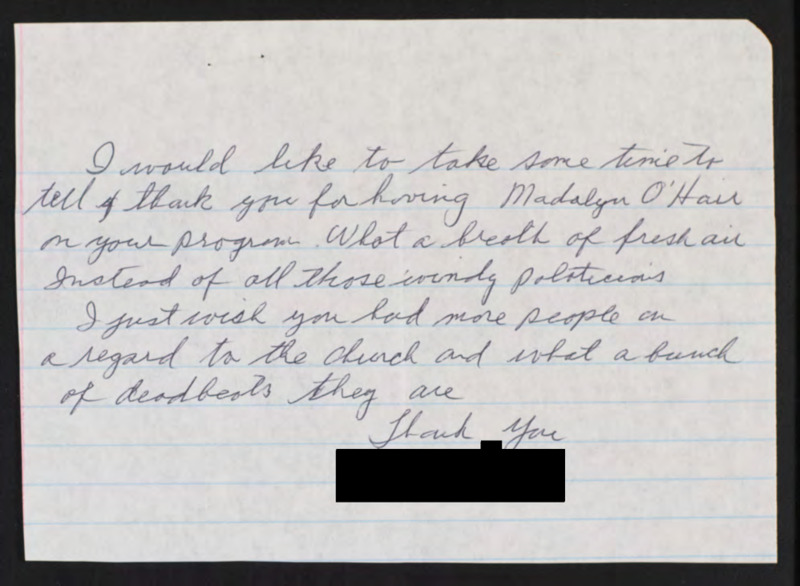 I would like to take some time to
tell & thank you for having Madalyn O'Hair
on your program. What a breath of fresh air
Instead of all those windy politicians
I just wish you had more people on
a regard to the church and what a bunch
of deadbeats they are
Thank You